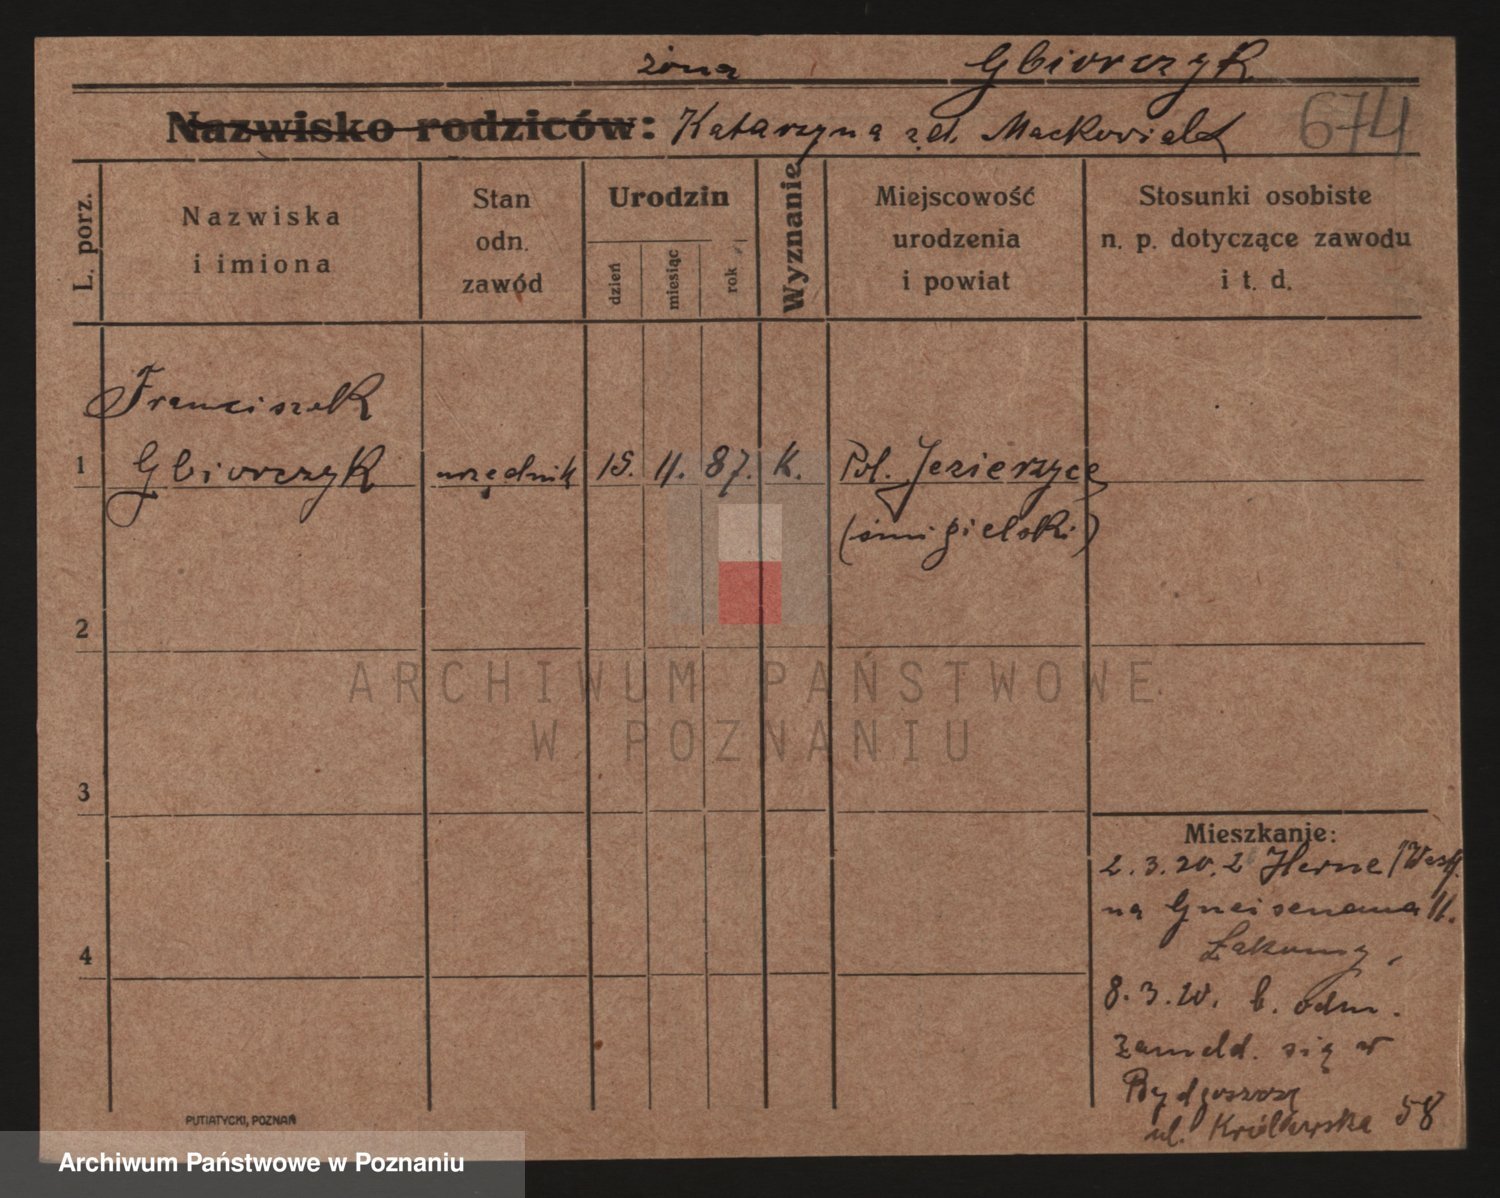 żona Gbiorczyk
Nazwisko rodziców: Katarzyna Maćkowiak
674
L. porz.
Nazwiska
i imiona
Stan
odn.
zawód
Urodzin
dzień
miesiąc
rok
Wyznanie
Miejscowość
urodzenia
i powiat
Stosunki osobiste
n. p. dotyczące zawodu
i t. d.
Franciszek
1 Gbiorczyk urzędnik 15. 11. 87. K. Pol. Jezierzyce
(śmigielski)
2
3
4
Mieszkanie:
2.3.20. z Herne /Westf.
na Gneisenaua 11.
8.3.20. b. odm.
zameld. się w
Bydgoszczy
ul. Królewska 58
PUTIATYCKI, POZNAŃ
ARCHIWUM PAŃSTWOWE
W POZNANIU
Archiwum Państwowe w Poznaniu